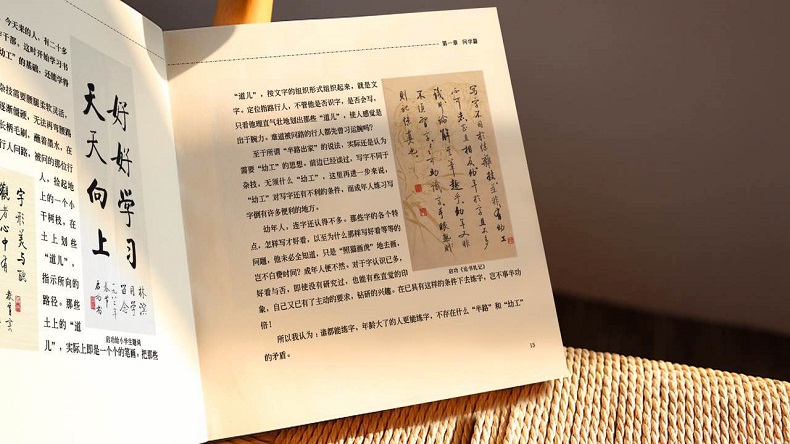 今天来的人，有二十多
干部，这时开始学习书
“幼工”的基础，还能学得
杂技需要腰腿柔软灵活，
逐渐僵硬，无法再弯腰踢
长柄毛刷，蘸着墨水，在
行人问路，被问的那位行
人，拾起地
上的一个小
干树枝，在
土上划些
“道儿”，
指示所向的
路径。那些
土上的“道
儿”，实际上即是一个个的笔画，把那些
好好学习
天天向上
启功给小学生题词
第一章 问学篇
“道儿”，按文字的组织形式组织起来，就是文
字。定位指路行人，不管他是否识字，是否会写，
只看他理直气壮地划出那些“道儿”，使人感觉是
出于腕力。章道被问路的行人都先曾习运腕吗？
至于所谓“半路出家”的说法，实际还是认为
需要“幼工”的思想。前边已经谈过，写字不同于
杂技，无须什么“幼工”，这里再进一步来说，
“幼工”对写字还有不利的条件，而成年人练习写
字倒有许多便利的地方。
幼年人，连字还认得不多。那些字的各个特
点，怎样写才好看，以至为什么那样写好看等等的
问题，他未必全知道，只是“照猫画虎”地去画，
岂不白费时间？成年人便不然。对于字认识已多，
好看与否，即使没有研究过，也能有些直觉的印
象，自己又已有了主动的要求，钻研的兴趣。在已具有这样的条件下去练字，岂不事半功
倍！
所以我认为：谁都能练字，年龄大了的人更能练字，不存在什么“半路”和“幼工”
的矛盾。
写字不同于练杂技并非有幼工
不可
启功《论书札记》
15